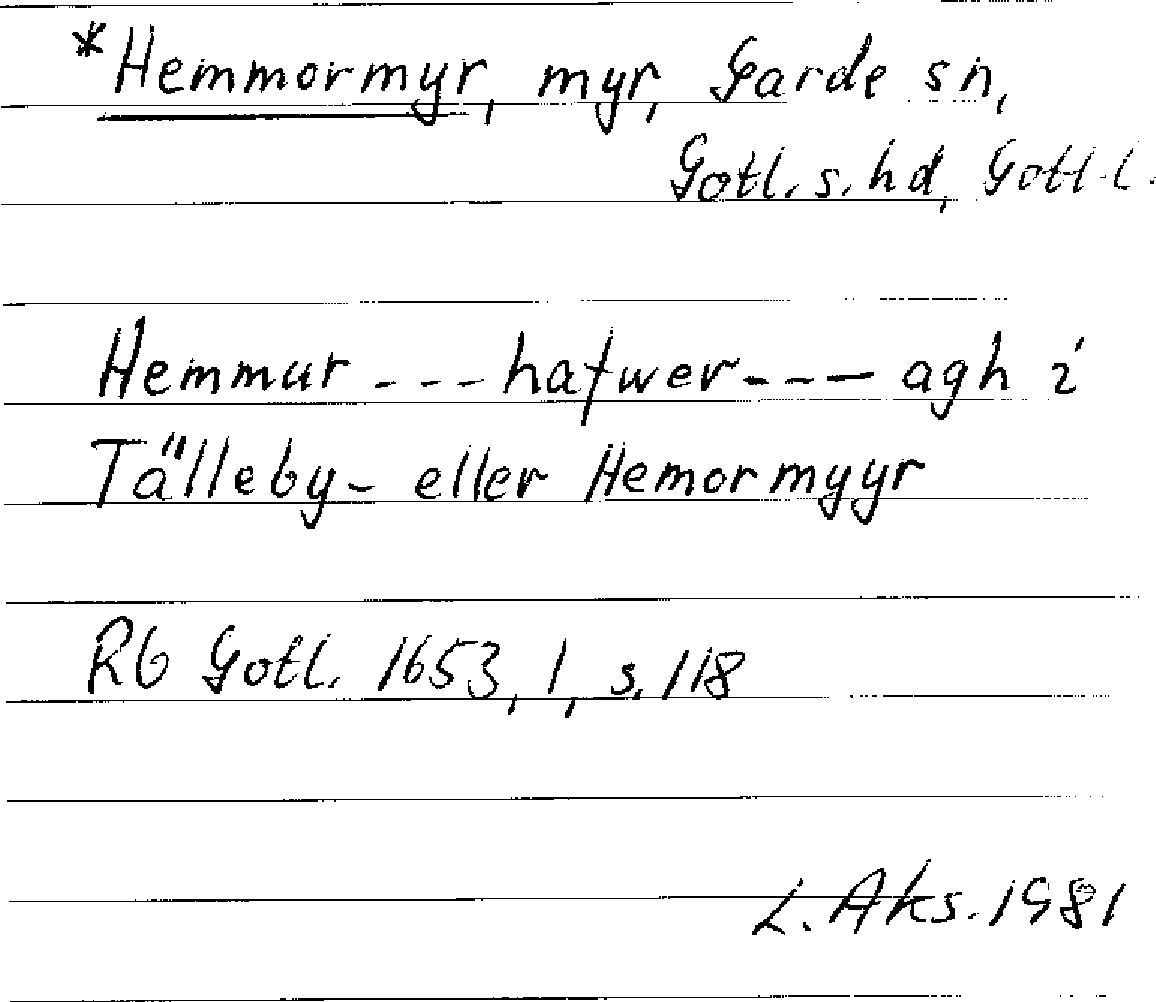 *Hemmormyr, myr, Garde sn,
Gotl. s. hd, Gotl. l.
Hemmur --- hafwer --- agh i
Tälleby- eller Hemormyyr
Rb Gotl. 1653, 1, s. 118
L. Aks. 1981